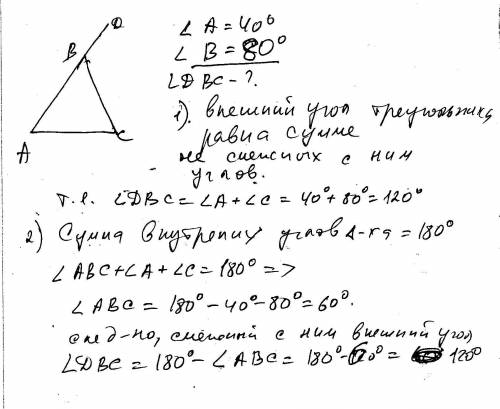 D
B
A
C
∠ A = 40°
∠ B = 80°
∠DBC - ?
1). внешний угол треугольника
равна сумме
не смежных с ним
углов.
т.е. ∠DBC = ∠A + ∠C = 40° + 80° = 120°
2) Сумма внутрених углов Δ-ка = 180°
∠ABC + ∠A + ∠C = 180° =>
∠ABC = 180° - 40° - 80° = 60°.
след-но, смежный с ним внешний угол
∠DBC = 180° - ∠ABC = 180° - 60° = 120°